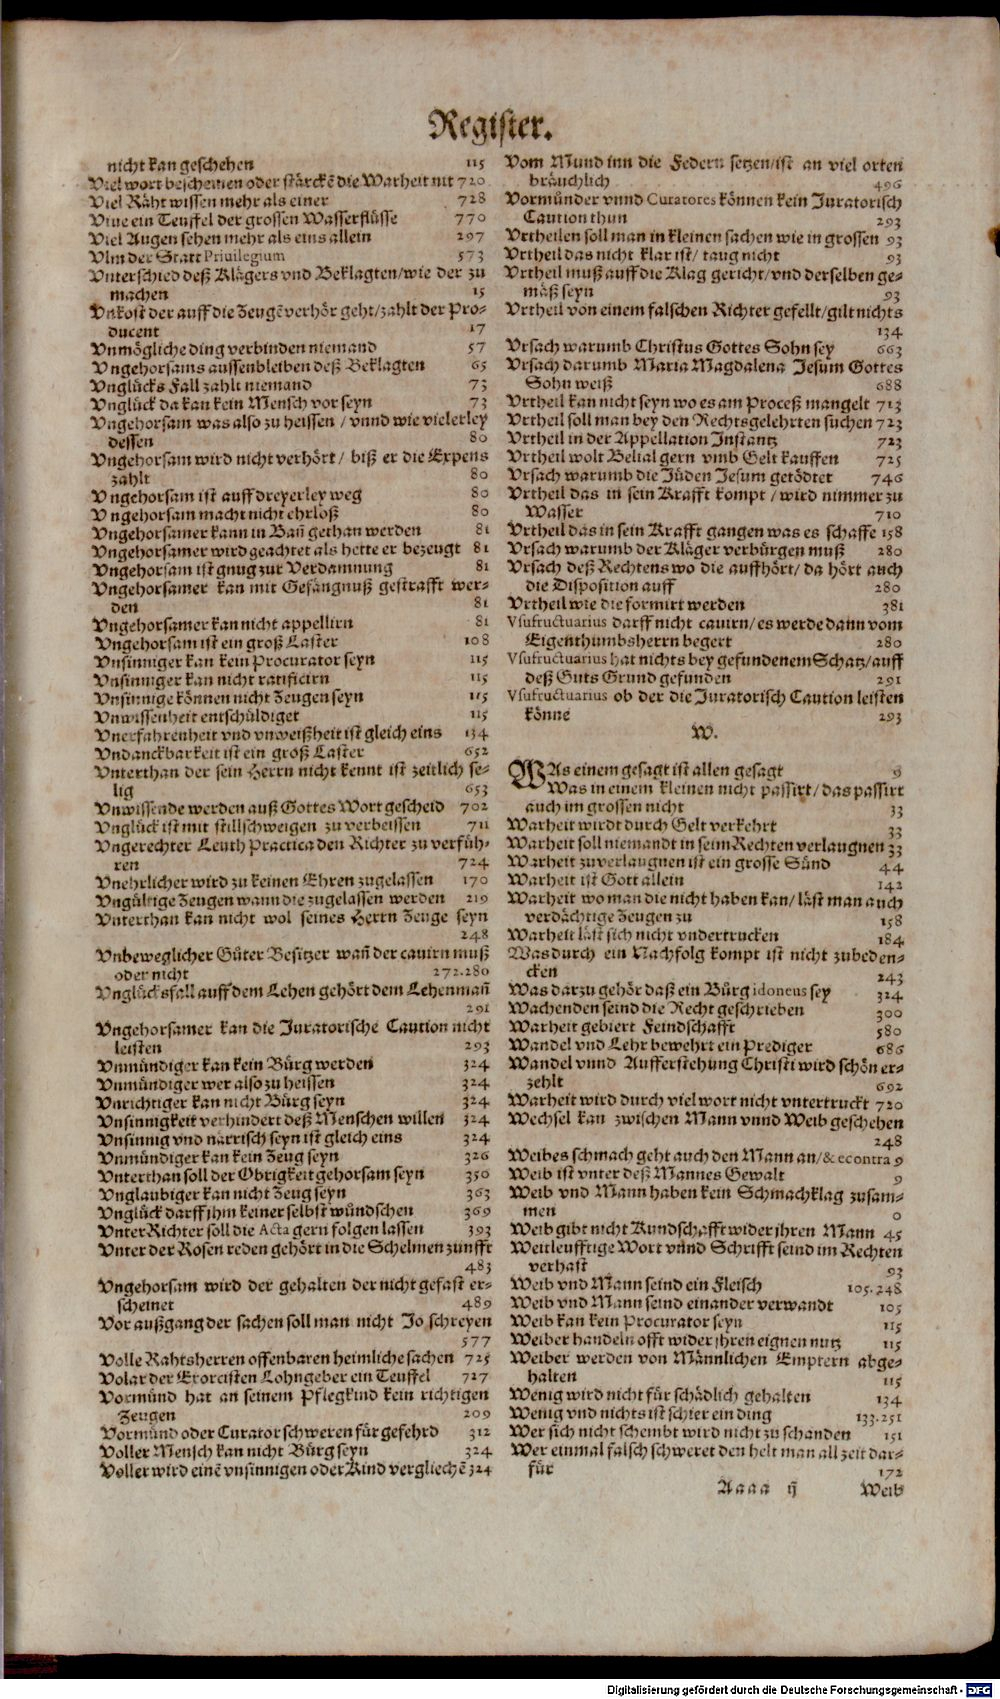 Register.
nicht kan geschehen 115
Viel wort bescheinen oder stärckẽ die Warheit nit 720
Viel Räht wissen mehr als einer 728
Viue ein Teuffel der grossen Wasserflüsse 770
Viel Augen sehen mehr als eins allein 297
Vlm der Statt Priuilegium 573
Vnterschied deß Klägers vnd Beklagten/wie der zu
machen 15
Vnkost der auff die Zeugẽverhör geht/zahlt der Pro-
ducent 17
Vnmögliche ding verbinden niemand 57
Vngehorsams aussenbleiben deß Beklagten 65
Vnglücks Fall zahlt niemand 73
Vnglück da kan kein Mensch vor seyn 73
Vngehorsam was also zu heissen / vnnd wie vielerley
dessen 80
Vngehorsam wird nicht verhört / biß er die Expens
zahlt 80
Vngehorsam ist auff dreyerley weg 80
Vngehorsam macht nicht ehrloß 80
Vngehorsamer kann in Bañ gethan werden 81
Vngehorsamer wird geachtet als hette er bezeugt 81
Vngehorsam ist gnug zur Verdamnung 81
Vngehorsamer kan mit Gefängnuß gestrafft wer-
den 81
Vngehorsamer kan nicht appellirn 81
Vngehorsam ist ein groß Laster 108
Vnsinniger kan kein Procurator seyn 115
Vnsinniger kan nicht ratificirn 115
Vnsinnige können nicht Zeugen seyn 115
Vnwissenheit entschüldiget 115
Vnerfahrenheit vnd vnweißheit ist gleich eins 134
Vndanckbarkeit ist ein groß Laster 652
Vnterthan der sein Herrn nicht kennt ist zeitlich se-
lig 653
Vnwissende werden auß Gottes Wort gescheid 702
Vnglück ist mit stillschweigen zu verbeissen 711
Vngerechter Leuth Practica den Richter zu verfüh-
ren 724
Vnehrlicher wird zu keinen Ehren zugelassen 170
Vngültige Zeugen wann die zugelassen werden 219
Vnterthan kan nicht wol seines Herrn Zeuge seyn
248
Vnbeweglicher Güter Besitzer wañ der cauirn muß
oder nicht 272.280
Vnglücksfall auff dem Lehen gehört dem Lehenmañ
291
Vngehorsamer kan die Juratorische Caution nicht
leisten 293
Vnmündiger kan kein Bürg werden 324
Vnmündiger wer also zu heissen 324
Vnrichtiger kan nicht Bürg seyn 324
Vnsinnigkeit verhindert deß Menschen willen 324
Vnsinnig vnd närrisch seyn ist gleich eins 324
Vnmündiger kan kein Zeug seyn 326
Vnterthan soll der Obrigkeit gehorsam seyn 350
Vnglaubiger kan nicht Zeug seyn 363
Vnglück darff jhm keiner selbst wündschen 369
VnterRichter soll die Acta gern folgen lassen 393
Vnter der Rosen reden gehört in die Schelmen zunfft
483
Vngehorsam wird der gehalten der nicht gefast er-
scheinet 489
Vor außgang der sachen soll man nicht Jo schreyen
577
Volle Rahtsherren offenbaren heimliche sachen 725
Volar der Exorcisten Lohngeber ein Teuffel 727
Vormünd hat an seinem Pflegkind kein richtigen
Zeugen 209
Vormünd oder Curator schweren für gefehrd 312
Voller Mensch kan nicht Bürg seyn 324
Voller wird einẽ vnsinnigen oder Kind vergliechẽ 324
Vom Mund inn die Federn setzen/ist an viel orten
bräuchlich 496
Vormünder vnnd Curatores können kein Juratorisch
Caution thun 293
Vrtheilen soll man in kleinen sachen wie in grossen 93
Vrtheil das nicht klar ist/ taug nicht 93
Vrtheil muß auff die Klag gericht/vnd derselben ge-
mäß seyn 93
Vrtheil von einem falschen Richter gefellt/gilt nichts
134
Vrsach warumb Christus Gottes Sohn sey 663
Vrsach darumb Maria Magdalena Jesum Gottes
Sohn weiß 688
Vrtheil kan nicht seyn wo es am Proceß mangelt 713
Vrtheil soll man bey den Rechtsgelehrten suchen 723
Vrtheil in der Appellation Instantz 723
Vrtheil wolt Belial gern vmb Gelt kauffen 725
Vrsach warumb die Jüden Jesum getödtet 746
Vrtheil das in sein Krafft kompt / wird nimmer zu
Wasser 710
Vrtheil das in sein Krafft gangen was es schaffe 158
Vrsach warumb der Kläger verbürgen muß 280
Vrsach deß Rechtens wo die auffhört/ da hört auch
die Disposition auff 280
Vrtheil wie die formirt werden 381
Vsufructuarius darff nicht cauirn/ es werde dann vom
Eigenthumbsherrn begert 280
Vsufructuarius hat nichts bey gefundenem Schatz/auff
deß Guts Grund gefunden 291
Vsufructuarius ob der die Juratorisch Caution leisten
könne 293
W.
WAs einem gesagt ist allen gesagt 9
Was in einem kleinen nicht passirt/ das passirt
auch im grossen nicht 33
Warheit wirdt durch Gelt verkehrt 33
Warheit soll niemandt in seim Rechten verlaugnen 33
Warheit zuverlaugnen ist ein grosse Sünd 44
Warheit ist Gott allein 142
Warheit wo man die nicht haben kan/ läst man auch
verdächtige Zeugen zu 158
Warheit läst sich nicht vndertrucken 184
Was durch ein Nachfolg kompt ist nicht zubeden-
cken 243
Was darzu gehör daß ein Bürg idoneus sey 324
Wachenden seind die Recht geschrieben 300
Warheit gebiert Feindschafft 580
Wandel vnd Lehr bewehrt ein Prediger 686
Wandel vnnd Aufferstehung Christi wird schön er-
zehlt 692
Warheit wird durch viel wort nicht vntertruckt 720
Wechsel kan zwischen Mann vnnd Weib geschehen
248
Weibes schmach geht auch den Mann an/& econtra 9
Weib ist vnter deß Mannes Gewalt 9
Weib vnd Mann haben kein Schmachklag zusam-
men 0
Weib gibt nicht Kundschafft wider jhren Mann 45
Weitleufftige Wort vnnd Schrifft seind im Rechten
verhast 93
Weib vnd Mann seind ein Fleisch 105.248
Weib vnd Mann seind einander verwandt 105
Weib kan kein Procurator seyn 115
Weiber handeln offt wider jhren eignen nutz 115
Weiber werden von Männlichen Emptern abge-
halten 115
Wenig wird nicht für schädlich gehalten 134
Wenig vnd nichts ist schier ein ding 133.251
Wer sich nicht schembt wird nicht zu schanden 151
Wer einmal falsch schweret den helt man all zeit dar-
für 172
Aaaa ij Weib
Digitalisierung gefördert durch die Deutsche Forschungsgemeinschaft - DFG